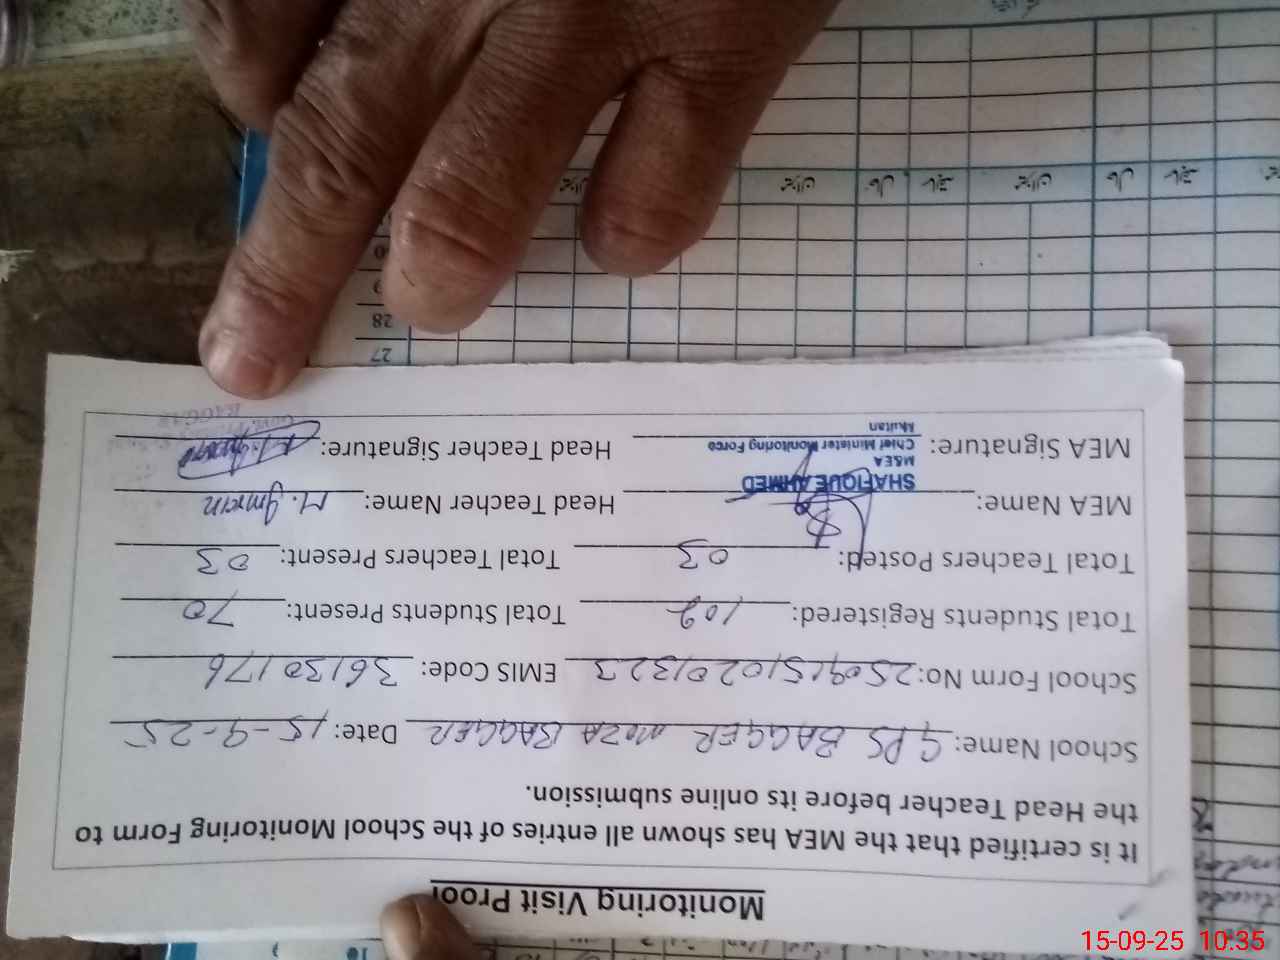 Monitoring Visit Proof
It is certified that the MEA has shown all entries of the School Monitoring Form to
the Head Teacher before its online submission.
School Name: GPS BAGGER MOZA BAGGER Date: 15-9-25
School Form No: 25091510201323 EMIS Code: 36130176
Total Students Registered: 102 Total Students Present: 70
Total Teachers Posted: 03 Total Teachers Present: 03
MEA Name: Head Teacher Name: M. Imran
SHAFIQUE AHMED
M&EA
MEA Signature: Head Teacher Signature:
Chief Minister Monitoring Force
Multan
27
28
15-09-25 10:35